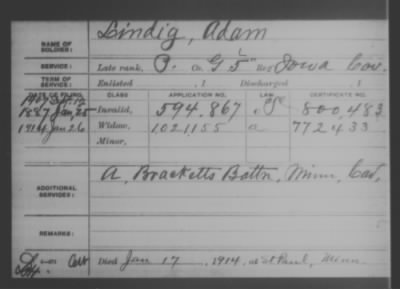 Lindig, Adam
NAME OF SOLDIER:
SERVICE: Late rank, P. Co. G 5" Reg Iowa Cav.
TERM OF SERVICE: Enlisted , 1 Discharged , 1
DATE OF FILING. CLASS. APPLICATION NO. LAW. CERTIFICATE NO.
1887 Jan, 25 Invalid, 594.867 800,483
1914 Jan 26 Widow, 1021155 a 772433
Minor,
ADDITIONAL SERVICES: A, Bracketts Battn, Minn, Cav,
REMARKS:
Died Jan 17 , 1914, at St Paul, Minn